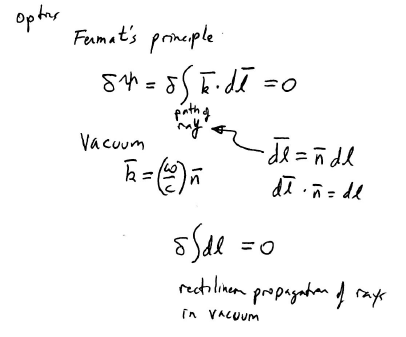 Optics
Fermat's principle
δψ = δ∫ k̄ · dl̄ = 0
path of
ray
Vacuum
k̄ = (ω/c) n̄
dl̄ = n̄ dl
dl̄ · n̄ = dl
δ∫dl = 0
rectilinear propagation of rays
in vacuum